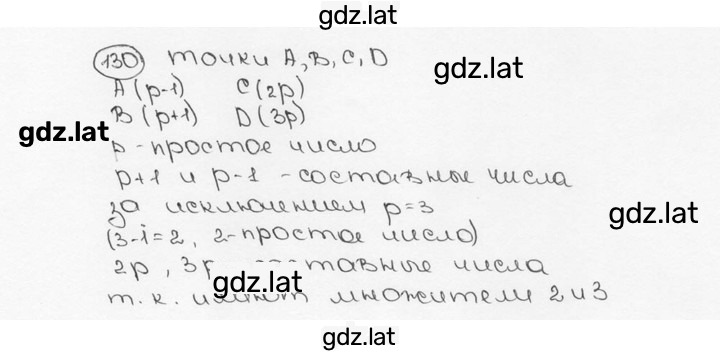 gdz.lat
130 точки A, B, C, D
gdz.lat
A (p-1) C (2p)
B (p+1) D (3p)
gdz.lat
p - простое число
p+1 и p-1 - составные числа
за исключением p=3
gdz.lat
(3-1=2, 2-простое число)
2p, 3p числа
gdz.lat
т. к. множители 2 и 3
gdz.lat